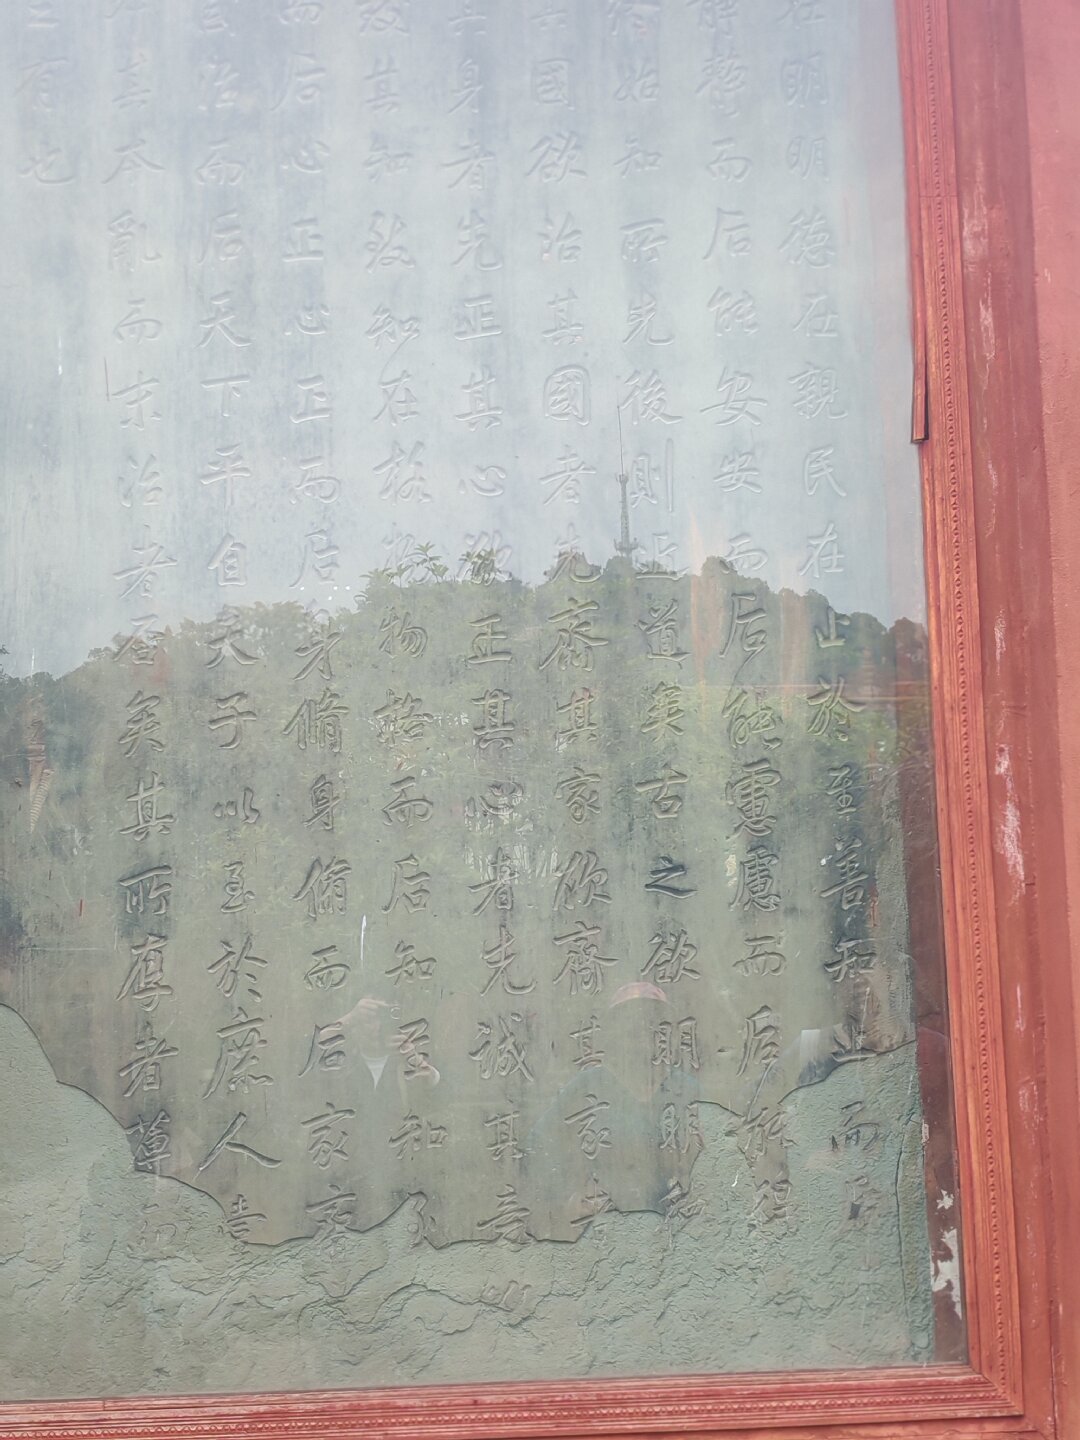 在明明德在親民在止於至善知止而后
靜而后能安安而后能慮慮而后能得
終始知所先後則近道矣古之欲明明德
國欲治其國者先齊其家欲齊其家者
其身者先正其心欲正其心者先誠其意
致其知致知在格物物格而后知至知至
而后心正心正而后身脩身脩而后家齊
國治而后天下平自天子以至於庶人壹
其本亂而末治者否矣其所厚者薄而
有也